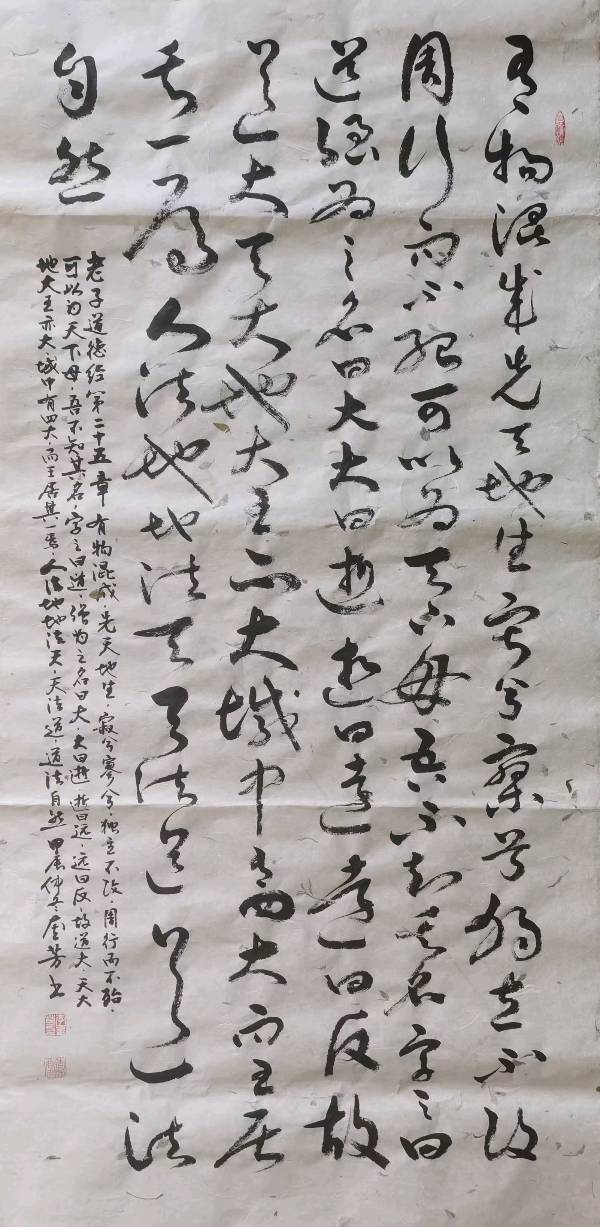 有物混成先天地生寂兮寥兮獨立不改
周行而不殆可以為天下母吾不知其名字之曰
道強為之名曰大大曰逝逝曰遠遠曰反故
道大天大地大王亦大域中有四大而王居
其一焉人法地地法天天法道道法
自然
老子道德经第二十五章 有物混成，先天地生，寂兮寥兮，独立不改，周行而不殆，
可以为天下母 吾不知其名，字之曰道，强为之名曰大，大曰逝 逝曰远，远曰反，故道大 天大
地大王亦大 域中有四大，而王居其一焉，人法地地法天，天法道 道法自然 甲辰仲冬 芳书